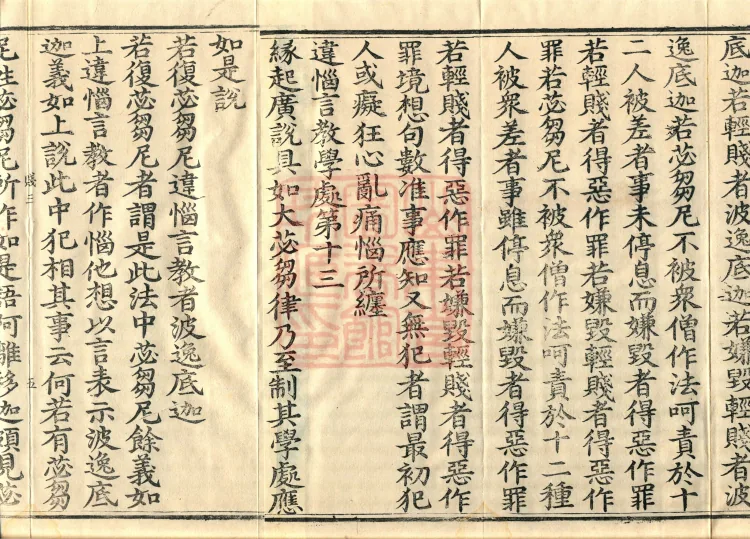 底迦若輕賤者波逸底迦若嫌毀輕賤者波
逸底迦若苾芻尼不被衆僧作法呵責於十
二人被差者事未停息而嫌毀者得惡作罪
若輕賤者得惡作罪若嫌毀輕賤者得惡作
罪若苾芻尼不被衆僧作法呵責於十二種
人被衆差者事雖停息而嫌毀者得惡作罪
若輕賤者得惡作罪若嫌毀輕賤者得惡作
罪境想句數准事應知又無犯者謂最初犯
人或癡狂心亂痛惱所纏
違惱言教學處第十三
緣起廣說具如大苾芻律乃至制其學處應
如是說
若復苾芻尼違惱言教者波逸底迦
若復苾芻尼者謂是此法中苾芻尼餘義如
上違惱言教者作惱他想以言表示波逸底
迦義如上說此中犯相其事云何若有苾芻
五
尼性苾芻尼所作如是語阿離移迦頗見苾